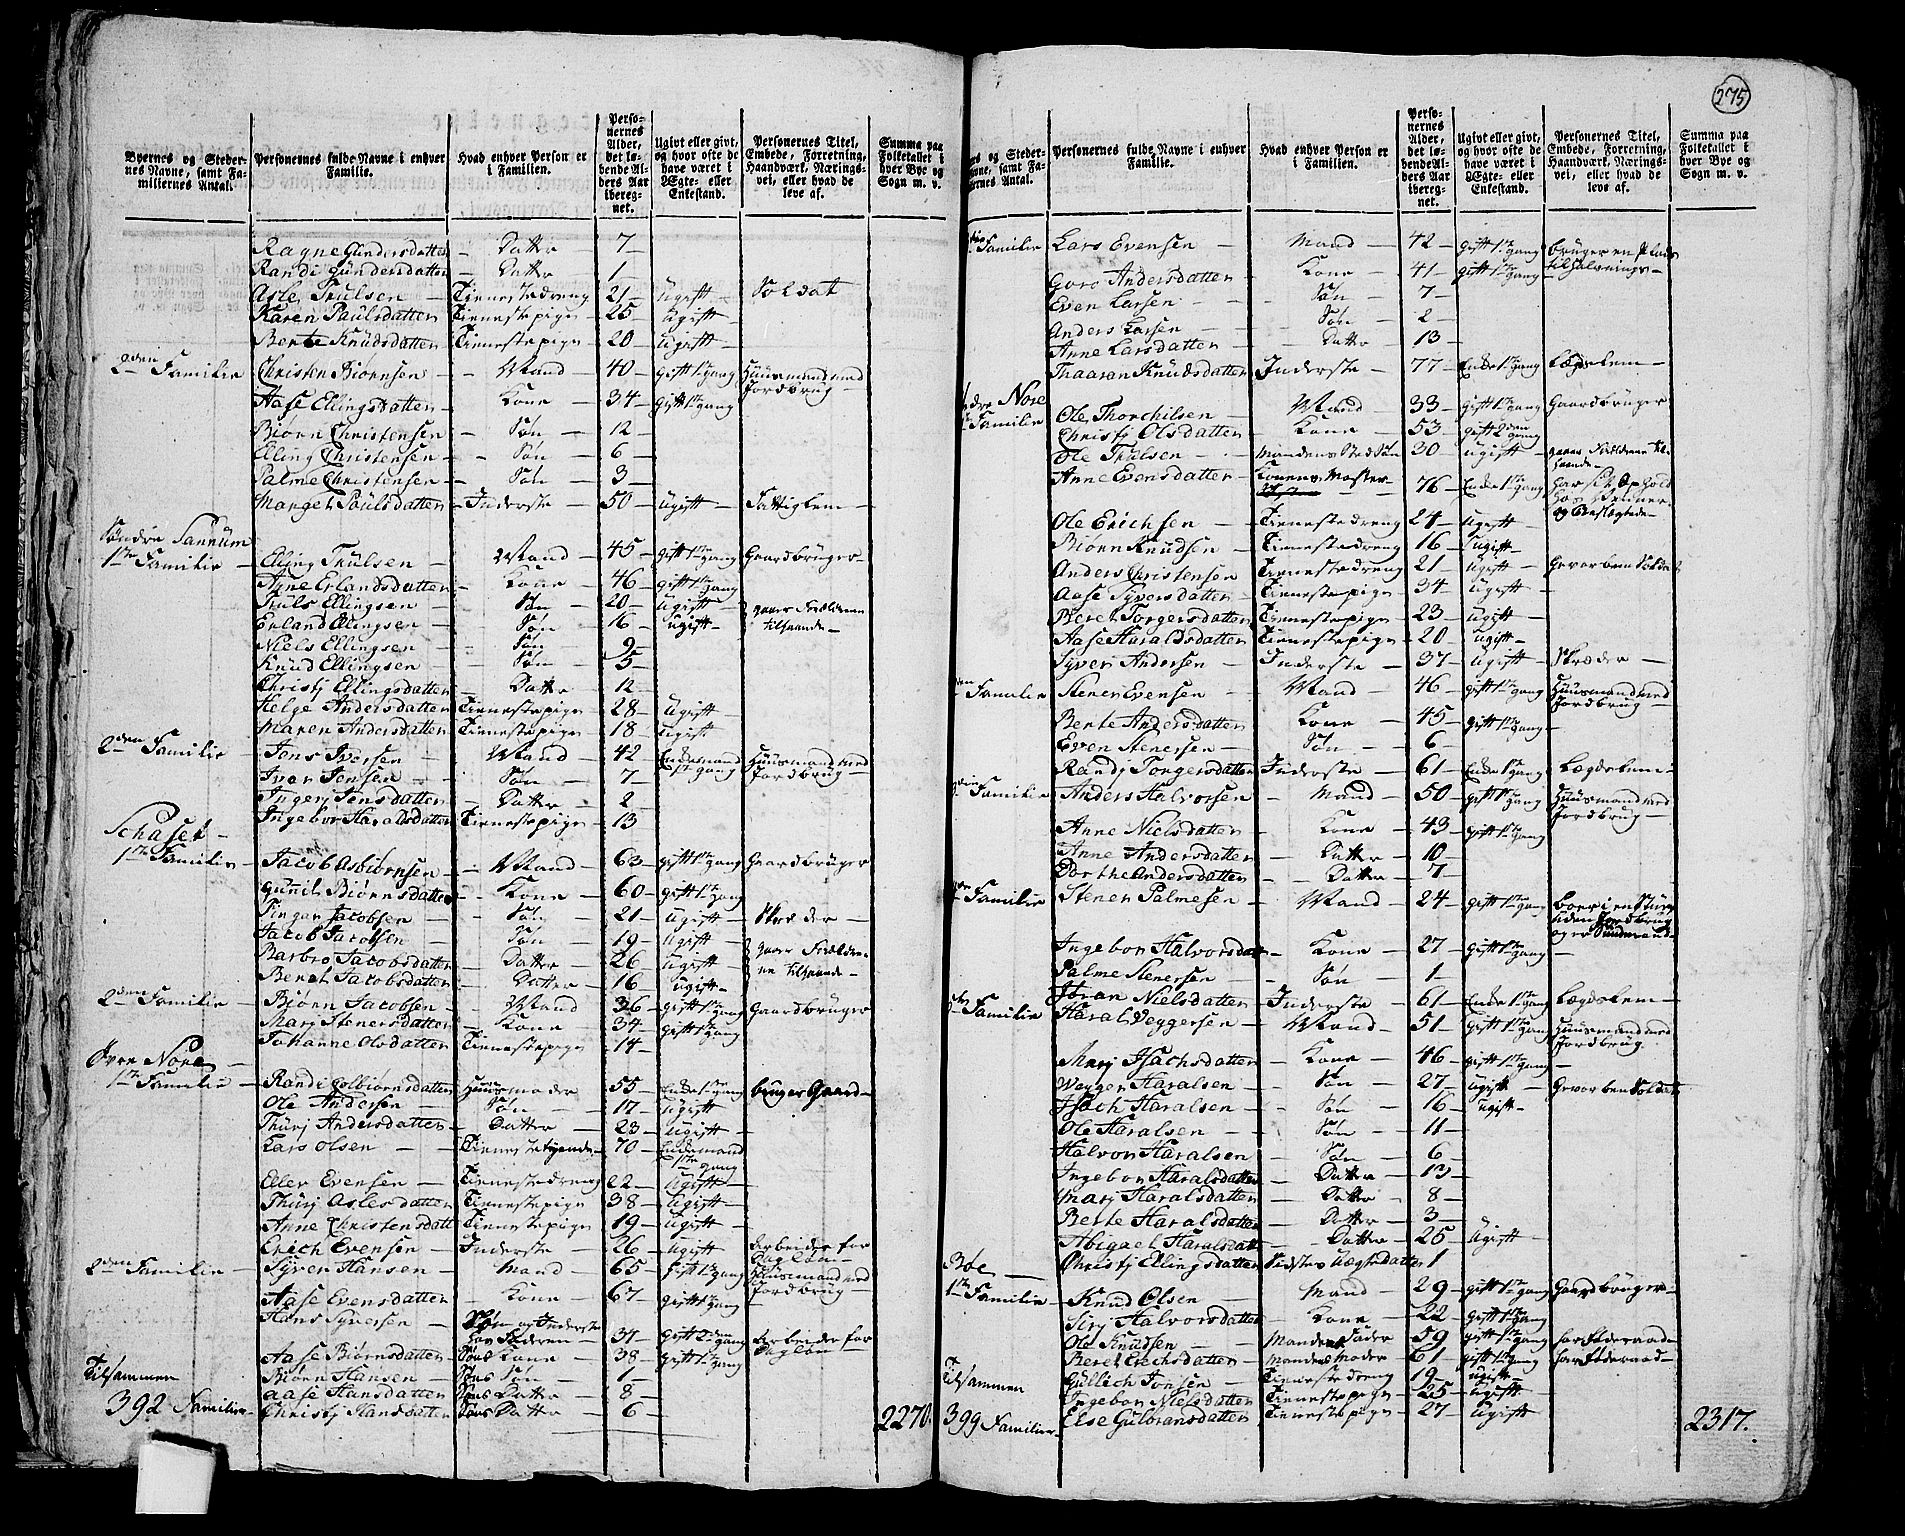 275
Byernes og Stedernes Navne, samt Familiernes Antal.
Personernes fulde Navne i enhver Familie.
Hvad enhver Person er i Familien.
Personernes Alder, det løbende Alders Aar iberegnet.
Ugivt eller givt, og hvor ofte de have været i Ægte- eller Enkestand.
Personernes Titel, Embede, Forretning, Haandværk, Næringsvei, eller hvad de leve af.
Summa paa Folketallet i hver Bye og Sogn m. v.
Ragne Gundersdatter Datter 7
Randi Gundersdatter Datter 1
Asle Trulsen Tienestedreng 21 Ugift Soldat
Karen Paulsdatter Tienestepige 25 Ugift
Berte Knudsdatter Tienestepige 20 Ugift
2den Familie Christen Biørnsen Mand 40 gift 1te gang Huusmand med Jordbrug
Aase Ellingsdatter Kone 34 gift 1te gang
Biørn Christensen Søn 12
Elling Christensen Søn 6
Palme Christensen Søn 3
Marget Paulsdatter Inderste 50 Ugift Fattiglem
Søndre Sannum
1te Familie Elling Trulsen Mand 45 gift 1te gang Gaardbruger
Agne Erlandsdatter Kone 46 gift 1te gang
Truls Ellingsen Søn 20 Ugift gaaer Forældrene
Erland Ellingsen Søn 16 Ugift tilhaande
Niels Ellingsen Søn 9
Knud Ellingsen Søn 5
Christj Ellingsdatter Datter 12
Helge Andersdatter Tienestepige 28 Ugift
Maren Andersdatter Tienestepige 18 Ugift
2den Familie Jens Iversen Mand 42 Enkemand 1te gang Huusmand med Jordbrug
Iver Jensen Søn 7
Ingerj Jensdatter Datter 2
Ingebor Haralsdatter Tienestepige 13
Schaset
1te Familie Jacob Asbiørnsen Mand 63 gift 1te gang Gaardbruger
Gunil Biørnsdatter Kone 60 gift 1te gang
Tingar Jacobsen Søn 21 Ugift Skræder
Jacob Jacobsen Søn 19 Ugift gaaer Forældre-
Barbro Jacobsdatter Datter 26 Ugift ne tilhaande
Beret Jacobsdatter Datter 16 Ugift
2den Familie Biørn Jacobsen Mand 36 gift 1te gang Gaardbruger
Marj Stenersdatter Kone 34 gift 1te gang
Johanne Olsdatter Tienestepige 14
Øvre Nore
1te Familie Randi Colbiørnsdatter Huusmoder 55 Enke 1te gang bruger Gaard
Ole Andersen Søn 17 Ugift
Thurj Andersdatter Datter 23 Ugift
Lars Olsen Tienestetyende 70 Enkemand 1te gang
Eller Evensen Tienestedreng 22 Ugift
Thurj Aslesdatter Tienestepige 38 Ugift
Anne Christensdatt Tienestepige 19 Ugift
Erich Evensen Inderste 26 Ugift Arbeider for Dagløn
2den Familie Syver Hansen Mand 65 gift 1te gang Huusmand med Jordbrug
Aase Evensdatter Kone 67 gift 1te gang
Hans Syversen Søn og Inderste hos Faderen 37 gift 2den gang Arbeider for Dagløn
Aase Biørnsdatter Søns Kone 38 gift 1te gang
Biørn Hansen Søns Søn 1
Tilsammen Aase Hansdatter Søns Datter 8
392 Familier Christj Hansdatter Søns Datter 6 2270.
Familie Lars Evensen Mand 42 gift 1te gang bruger en Plads
Goro Andersdatter Kone 41 gift 1te gang til
Even Larsen Søn 7
Anders Larsen Søn 2
Anne Larsdatter Datter 13
Thaaran Knudsdatter Inderste 77 Enke 1te gang Lægdslem
Nore
Familie Ole Thorchilsen Mand 33 gift 1te gang Gaardbruger
Christj Olsdatter Kone 53 gift 2den gang
Ole Trulsen Mandens Stedsøn 30 Ugift gaaer Forældrene til haande
Anne Evensdatter Konens Moster 76 Enke 1te gang har sit Ophold hos Venner og Beslægtede
Ole Erichsen Tienestedreng 24 Ugift
Biørn Knudsen Tienestedreng 16 Ugift
Anders Christensen Tienestedreng 21 Ugift Gevorben Soldat
Aase Syversdatter Tienestepige 34 Ugift
Beret Torgersdatter Tienestepige 23 Ugift
Aase Haraldsdatter Tienestepige 20 Ugift
Syver Andersen Inderste 37 Ugift Skræder
Familie Stener Evensen Mand 46 gift 1te gang Huusmand med Jordbrug
Berte Andersdatter Kone 45 gift 1te gang
Even Stenersen Søn 6
Randj Torgersdatter Inderste 61 Enke 1te gang Lægdslem
Familie Anders Halvorsen Mand 50 gift 1te gang Huusmand med Jordbrug
Anne Nielsdatter Kone 43 gift 1te gang
Anne Andersdatter Datter 10
Dorthe Andersdatter Datter 7
Familie Stener Palmesen Mand 24 gift 1te gang boer i en Stue uden Jordbrug og er
Ingebor Halvorsdat Kone 27 gift 1te gang
Palme Stenersen Søn 1
Jøran Nielsdatter Inderste 61 Enke 1te gang Lægdslem
5te Familie Haral Veggersen Mand 51 gift 1te gang Huusmand med Jordbrug
Marj Isachsdatter Kone 46 gift 1te gang
Wegger Haralsen Søn 27 Ugift Gevorben Soldat
Isach Haralsen Søn 16 Ugift
Ole Haralsen Søn 11
Halvor Haralsen Søn 6
Ingebor Haralsdatter Datter 13
Marj Haralsdatter Datter 8
Berte Haralsdatter Datter 3
Abigael Haralsdatt Datter 25 Ugift
Christj Ellingsdatter Uægtedatter 1
Bøe
1te Familie Knud Olsen Mand 29 gift 1te gang Gaardbruger
Sirj Halvorsdatter Kone 22 gift 1te gang
Ole Knudsen Mandens Fader 59 gift 1te gang har Føderaad
Beret Erichsdatter Mandens Moder 61 gift 1te gang har Føderaad
Tilsammen Gullich Jonsen Tienestedreng 19 Ugift
Ingebor Nielsdatter Tienestepige 25 Ugift
399 Familier Else Gulbransdatter Tienestepige 27 Ugift 2317.